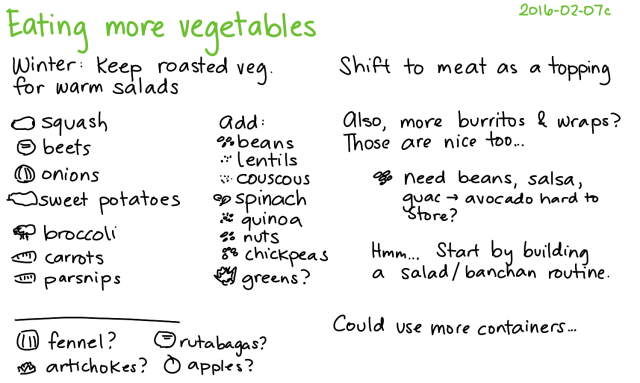 Eating more vegetables
2016-02-07c
Winter: Keep roasted veg.
for warm salads
squash
beets
onions
sweet potatoes
broccoli
carrots
parsnips
fennel?
artichokes?
rutabagas?
apples?
add:
beans
lentils
couscous
spinach
quinoa
nuts
chickpeas
greens?
Shift to meat as a topping
Also, more burritos & wraps?
Those are nice too...
need beans, salsa,
guac → avocado hard to
store?
Hmm... Start by building
a salad/banchan routine.
Could use more containers...